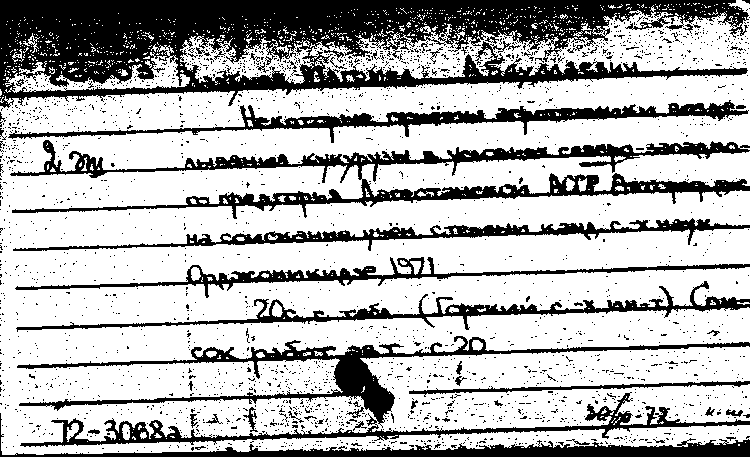 Абдулаевич
Некоторые приёмы агротехники возде-
2 эк. лывания кукурузы в условиях северо-западно-
го предгорья Дагестанской АССР Автореф дис
на соискание учён. степени канд. с.-х наук.
Орджоникидзе, 1971
20 с. с табл (Горский с.-х ин-т) Спи-
сок работ авт.: с 20
72-3068а